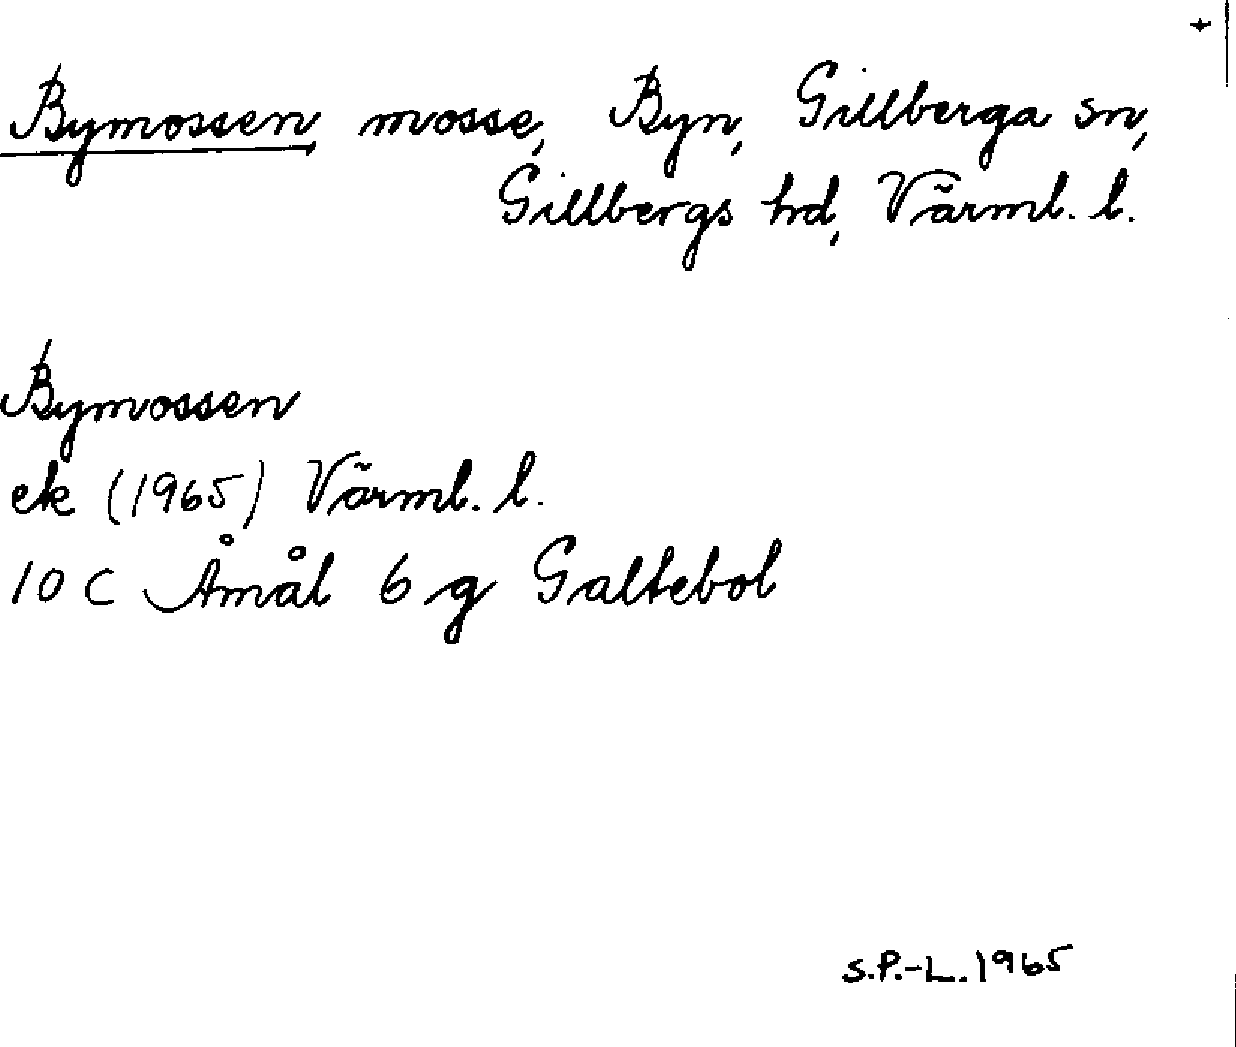 +
Bymossen, mosse, Byn, Gillberga sn,
Gillbergs hd, Värml. l.
Bymossen
ek (1965) Värml. l.
10 C Åmål 6 g Galtebol
S.P.-L. 1965